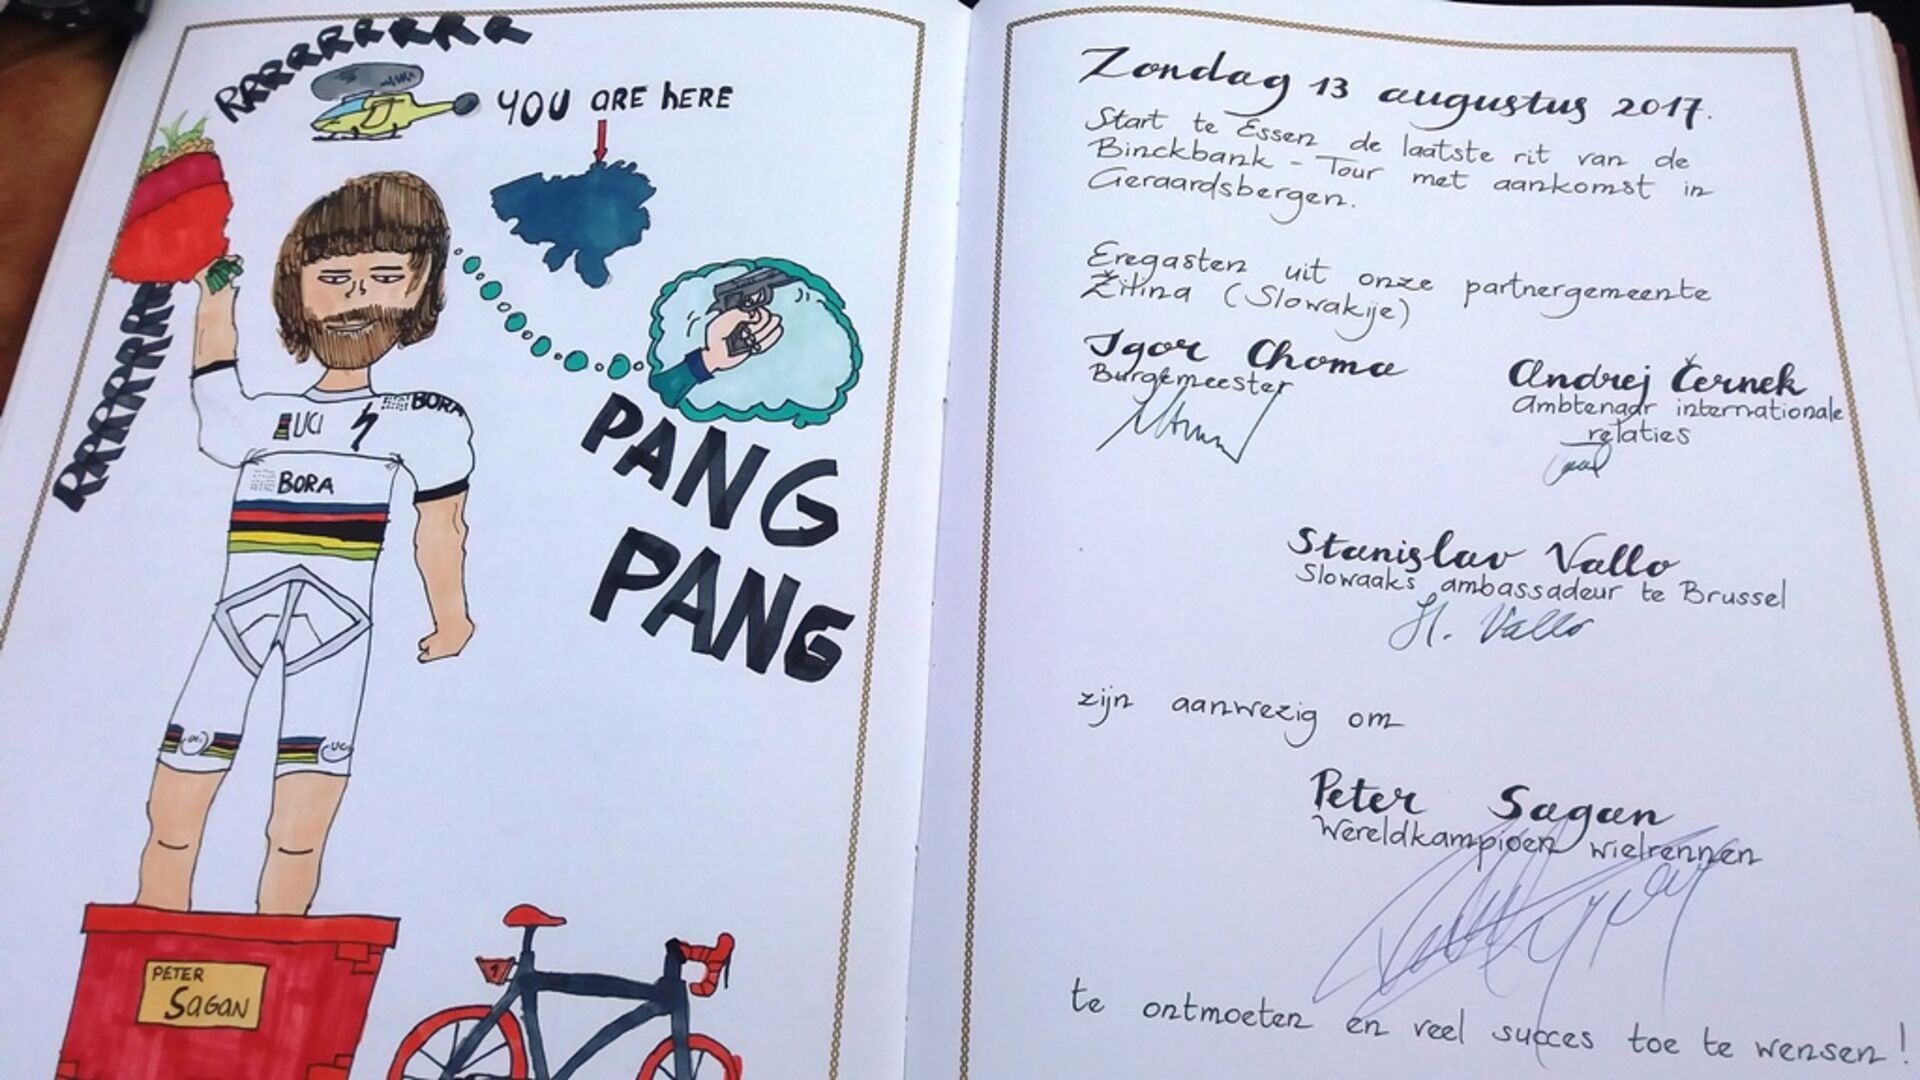 RRRRRRRRR
YOU ARE hERE
RRRRRRR
UCI
BORA
BORA
PANG
PANG
UCI
UCI
PETER
SAGAN
1
Zondag 13 augustus 2017.
Start te Essen de laatste rit van de
Binckbank - Tour met aankomst in
Geraardsbergen.
Eregasten uit onze partnergemeente
Žilina (Slowakije)
Igor Choma
Burgemeester
Andrej Černek
Ambtenaar internationale
relaties
Stanislav Vallo
Slowaaks ambassadeur te Brussel
St. Vallo
zijn aanwezig om
Peter Sagan
Wereldkampioen wielrennen
te ontmoeten en veel succes toe te wensen!